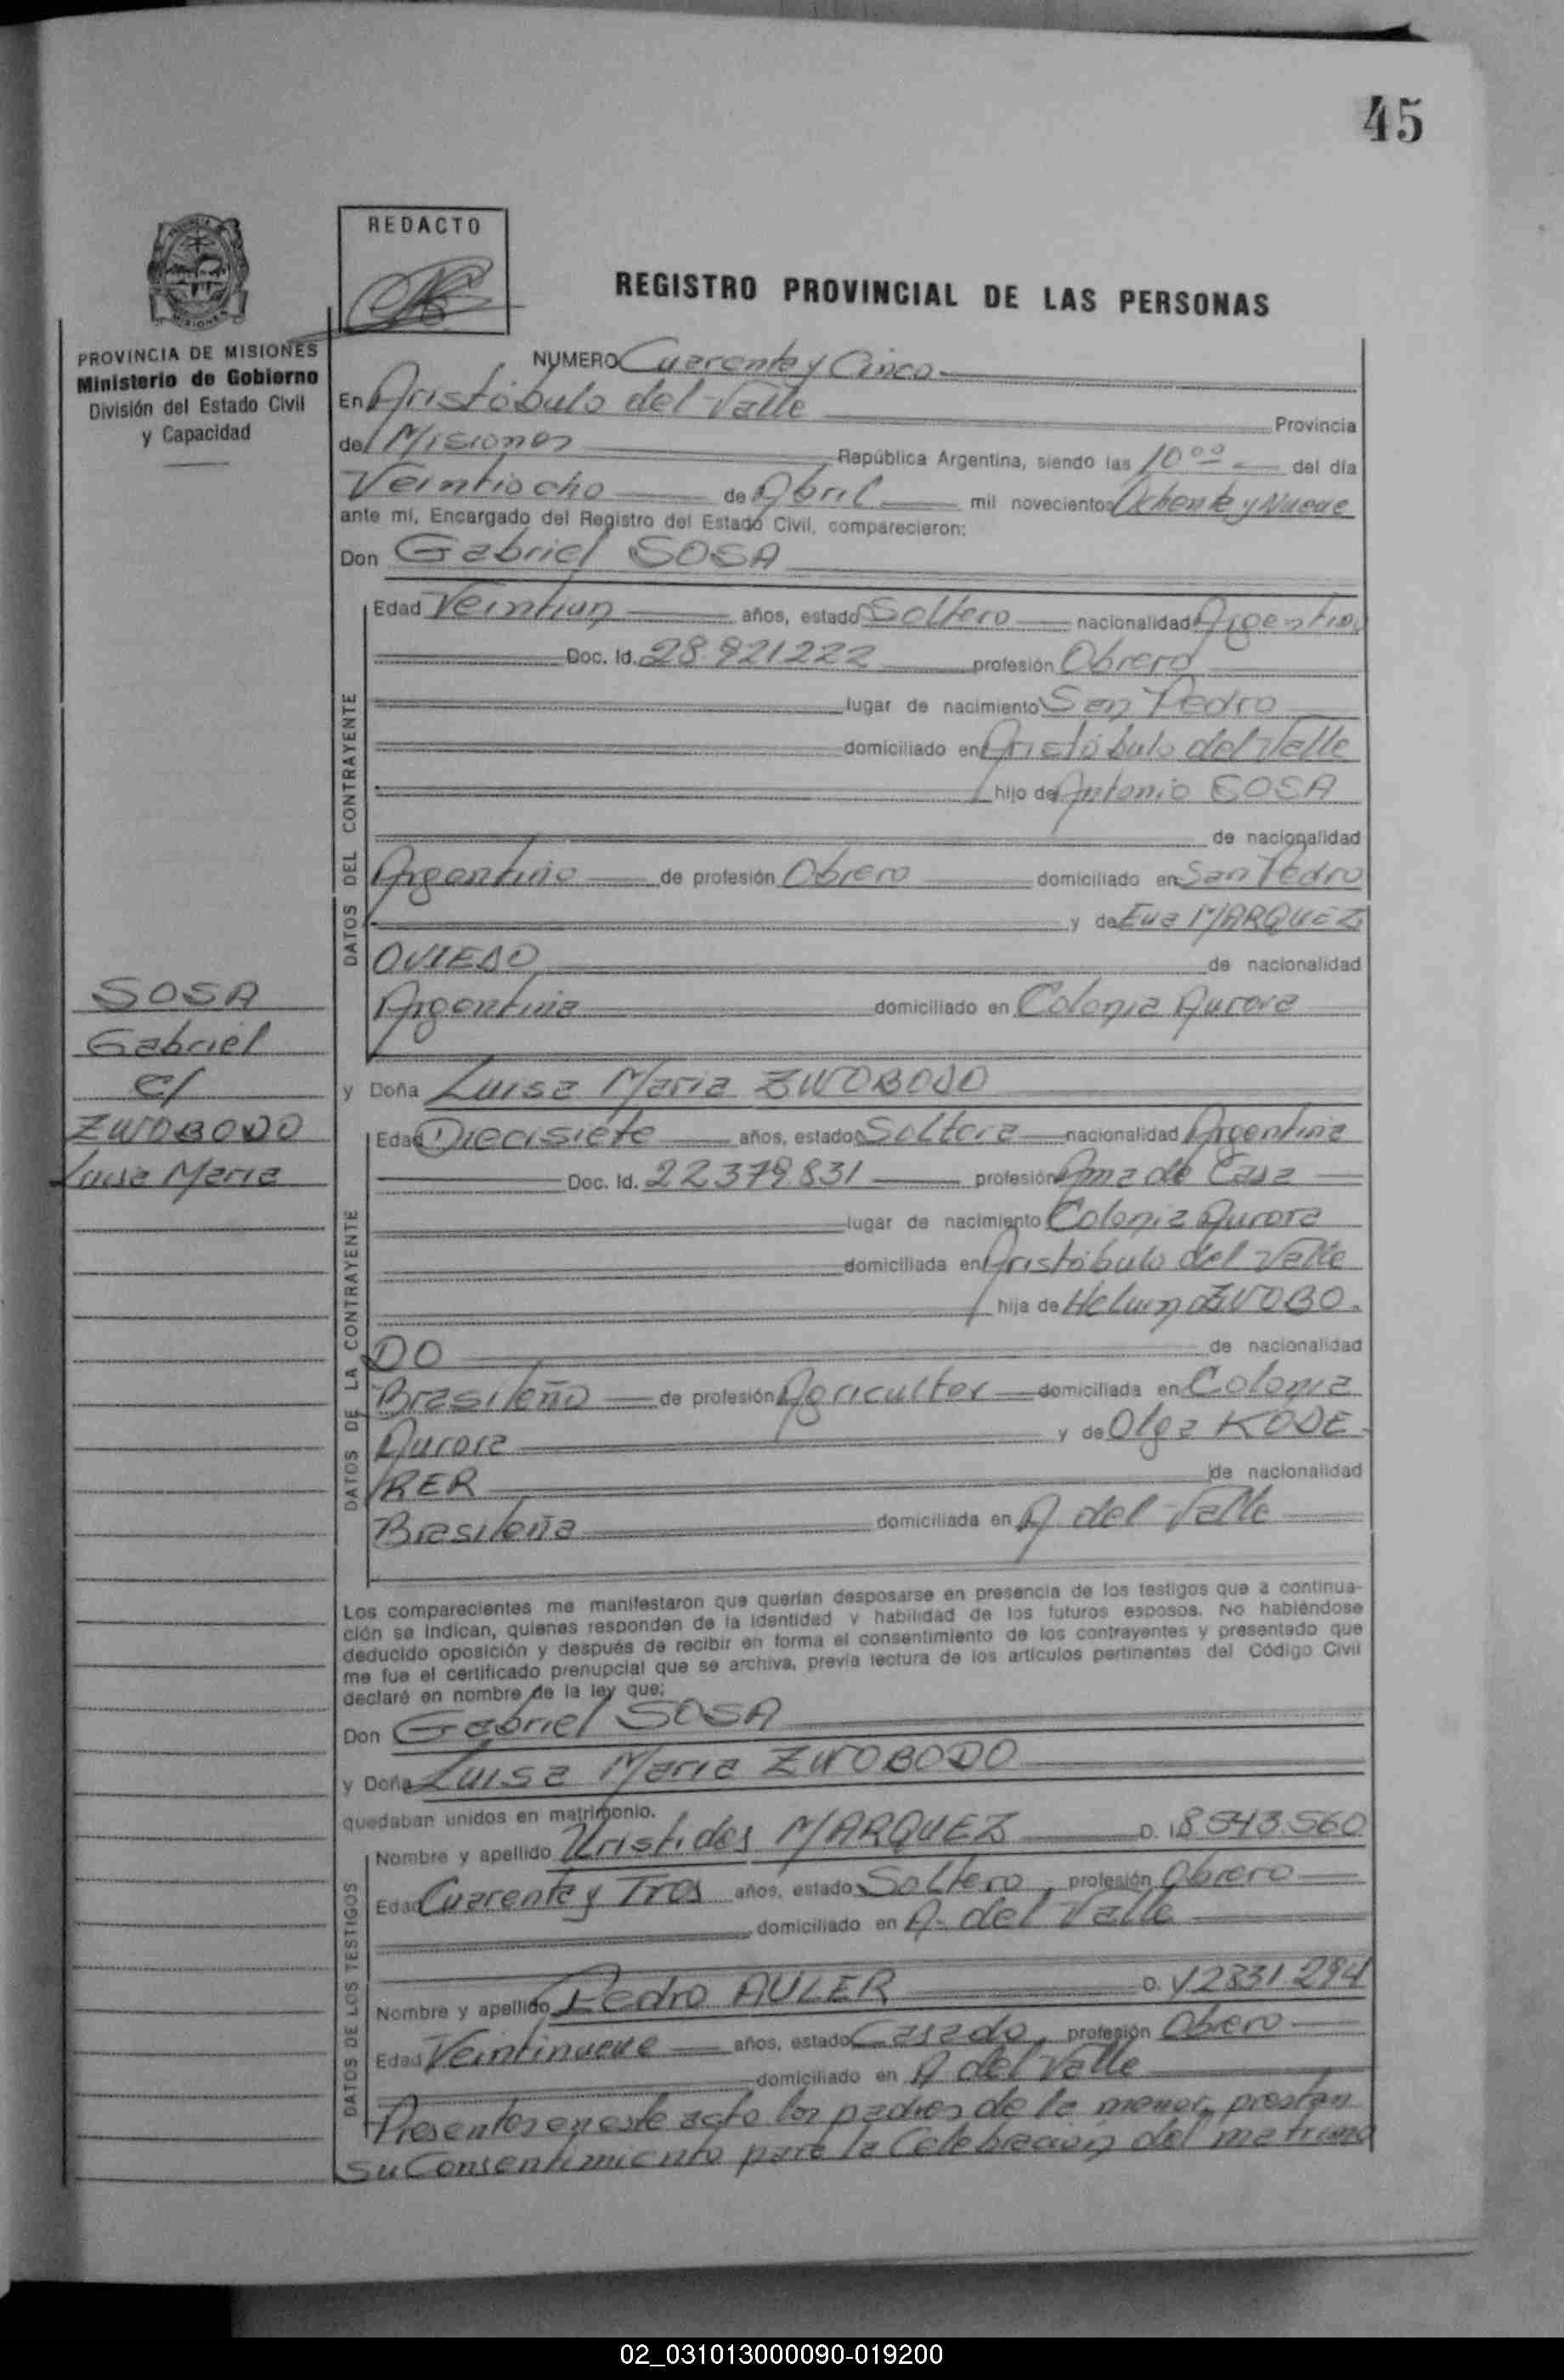 45
REDACTO
REGISTRO PROVINCIAL DE LAS PERSONAS
PROVINCIA DE MISIONES
Ministerio de Gobierno
División del Estado Civil
y Capacidad
NUMERO Cuarenta y Cinco
En Aristóbulo del Valle Provincia
de Misiones República Argentina, siendo las 10 00 del día
Veintiocho de Abril mil novecientos Ochenta y Nueve
ante mí, Encargado del Registro del Estado Civil, comparecieron:
Don Gabriel SOSA
DATOS DEL CONTRAYENTE
Edad Veintiun años, estado Soltero nacionalidad Argentin
Doc. Id. 28.921222 profesión Obrero
lugar de nacimiento San Pedro
domiciliado en Aristóbulo del Valle
hijo de Antonio SOSA
de nacionalidad
Argentino de profesión Obrero domiciliado en San Pedro
y de Eva MARQUEZ
OVIEDO de nacionalidad
Argentina domiciliado en Colonia Aurora
SOSA
Gabriel
c/
ZWOBODO
Luisa Maria
y Doña Luisa Maria ZWOBODO
DATOS DE LA CONTRAYENTE
Edad Diecisiete años, estado Soltera nacionalidad Argentina
Doc. Id. 22.379.831 profesión Ama de Casa
lugar de nacimiento Colonia Aurora
domiciliada en Aristóbulo del Valle
hija de ZWOBO-
DO de nacionalidad
Brasileño de profesión Agricultor domiciliada en Colonia
Aurora y de Olga KODE-
RER de nacionalidad
Brasileña domiciliada en A del Valle
Los comparecientes me manifestaron que querían desposarse en presencia de los testigos que a continua-
ción se indican, quienes responden de la identidad y habilidad de los futuros esposos. No habiéndose
deducido oposición y después de recibir en forma el consentimiento de los contrayentes y presentado que
me fue el certificado prenupcial que se archiva, previa lectura de los artículos pertinentes del Código Civil
declaré en nombre de la ley que:
Don Gabriel SOSA
y Doña Luisa Maria ZWOBODO
quedaban unidos en matrimonio.
DATOS DE LOS TESTIGOS
Nombre y apellido MARQUEZ D. I. 8543.560
Edad Cuarenta y Tres años, estado Soltero, profesión Obrero
domiciliado en A. del Valle
Nombre y apellido Pedro AULER D. I 12831294
Edad Veintinueve años, estado Casado, profesión Obrero
domiciliado en A del Valle
Presentes en este acto los padres de la menor, prestan
su Consentimiento para la Celebración del matrimo
02_031013000090-019200